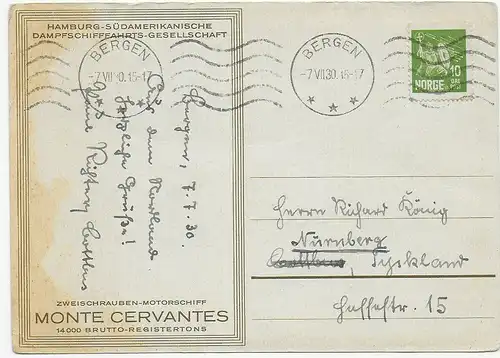 HAMBURG-SÜDAMERIKANISCHE
DAMPFSCHIFFFAHRTS-GESELLSCHAFT
BERGEN
-7 VII 30.15-17
BERGEN
-7 VII 30.15-17
10
ØRE
NORGE
Bergen, 7.7.30
Aus dem Nordland
herzliche Grüße!
Cottbus
Herrn Richard König
Nürnberg
Cottbus, Tyskland
15
ZWEISCHRAUBEN-MOTORSCHIFF
MONTE CERVANTES
14000 BRUTTO-REGISTERTONS